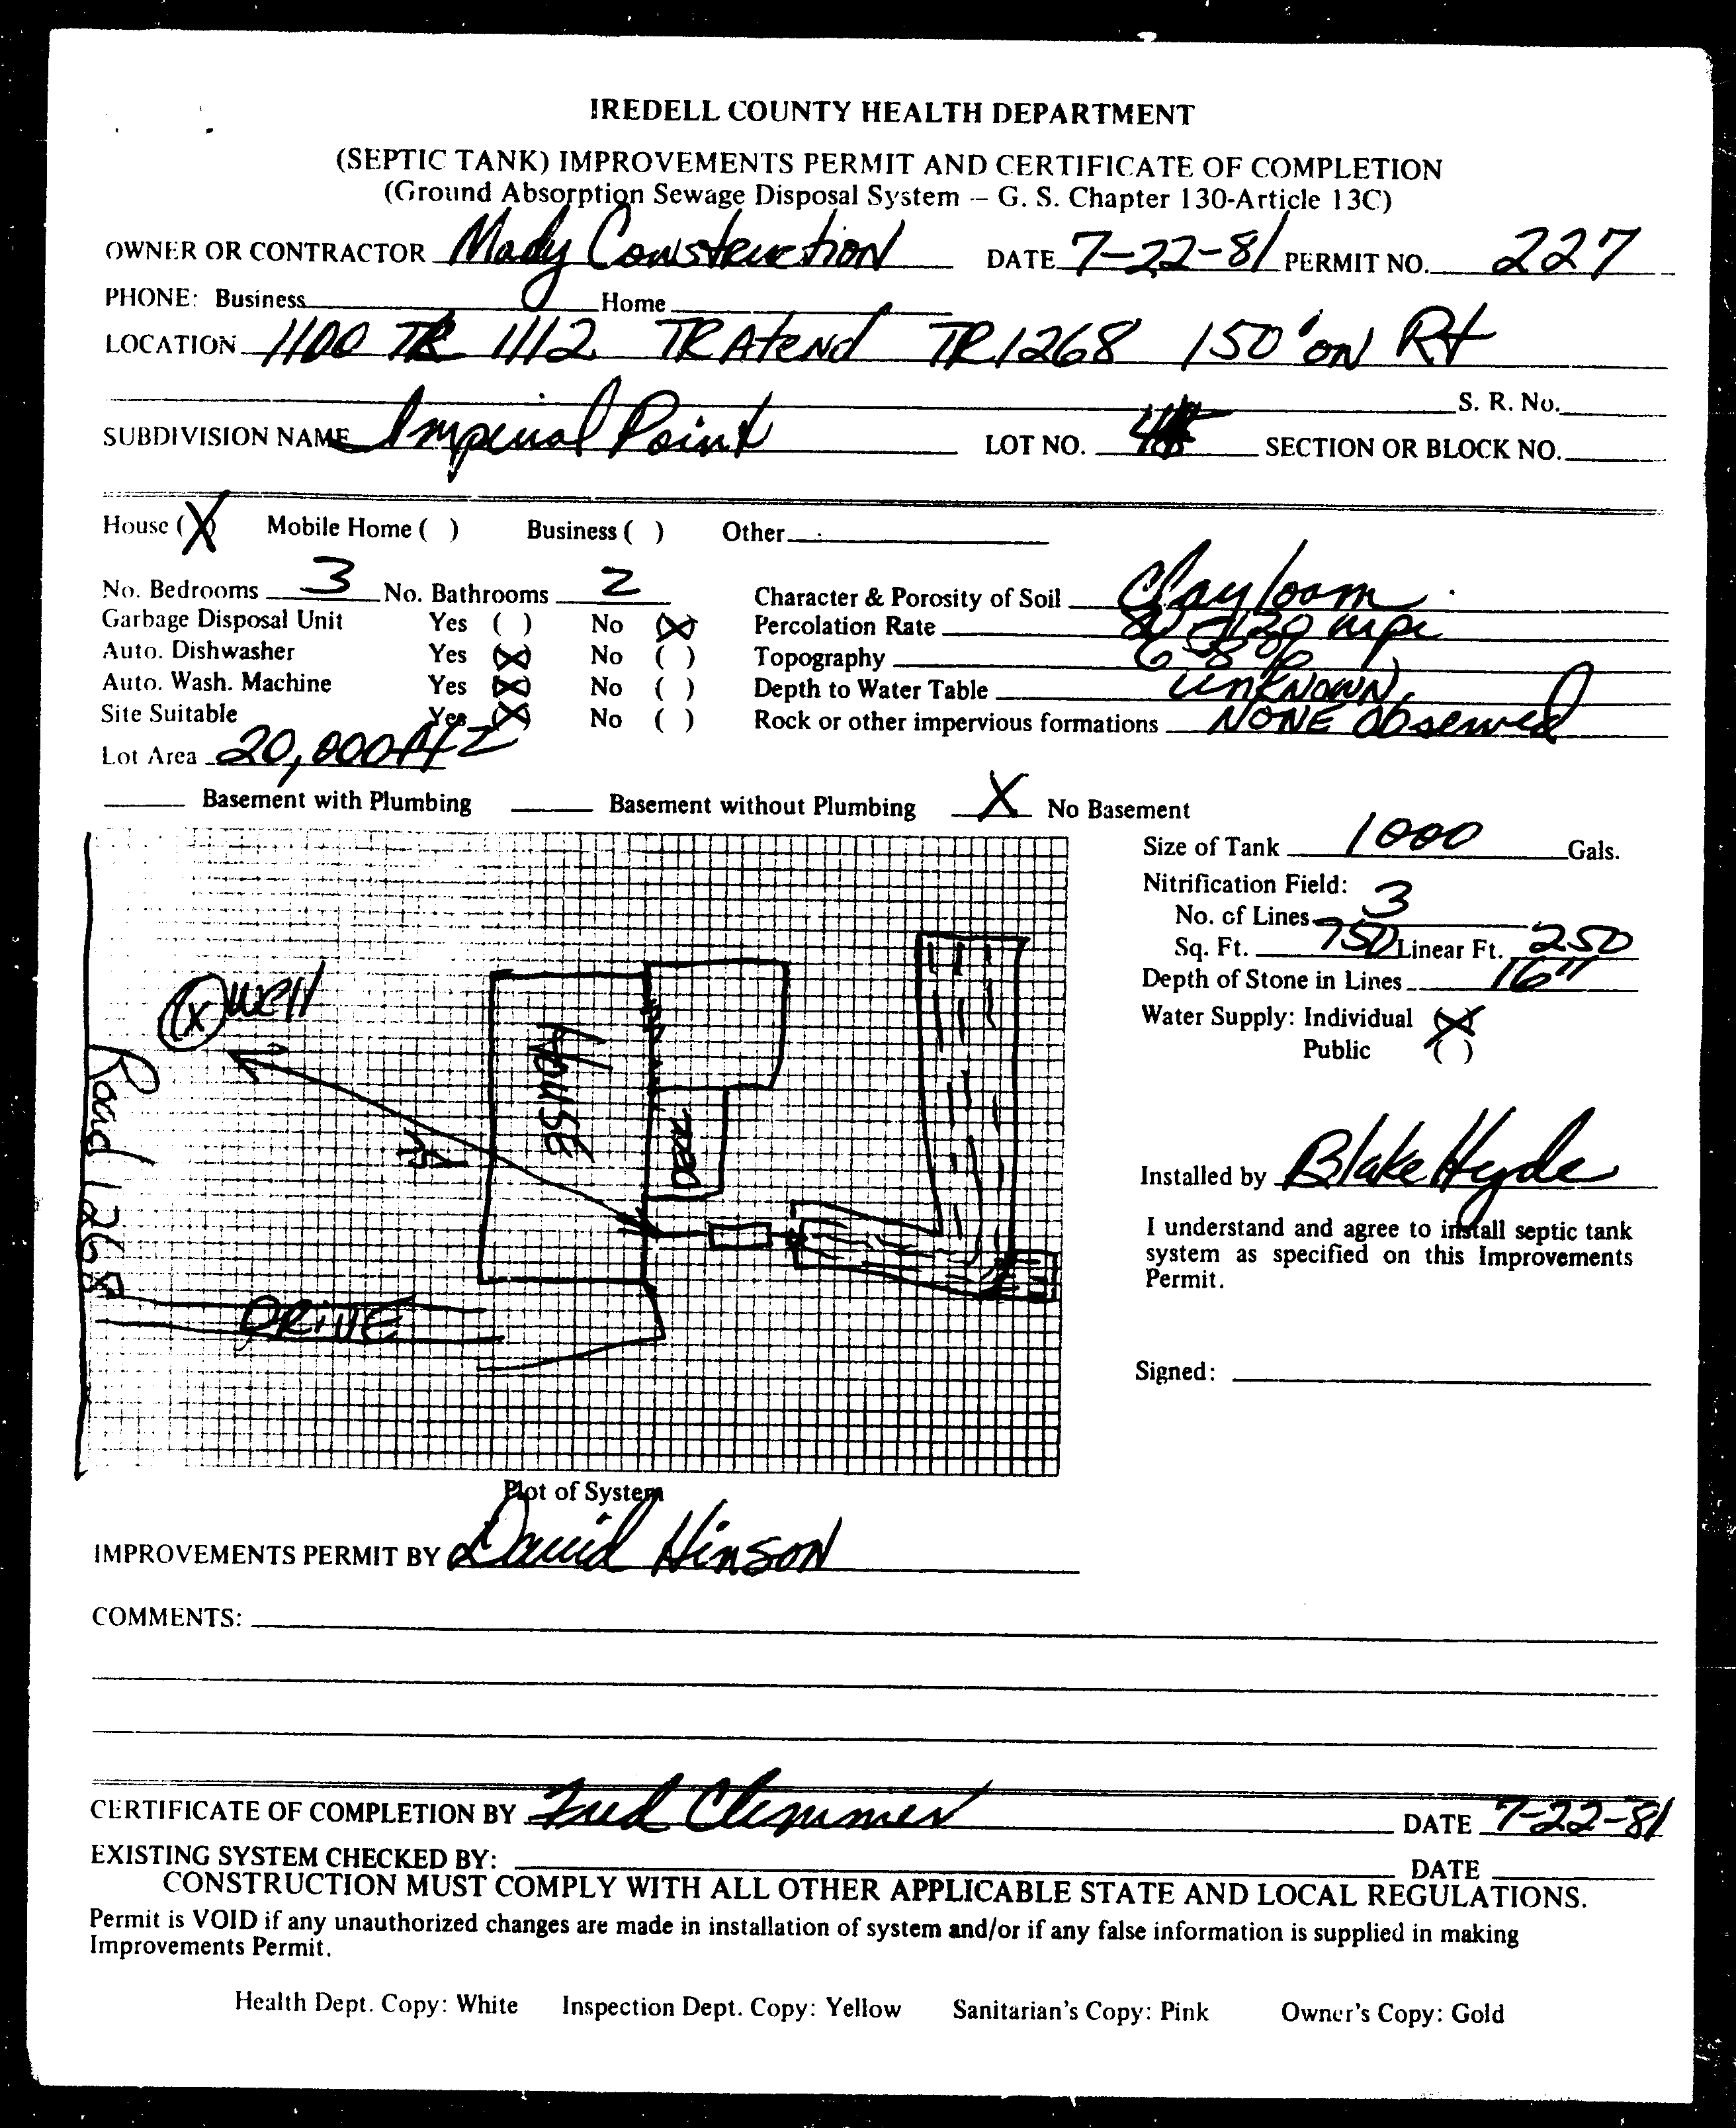 IREDELL COUNTY HEALTH DEPARTMENT
(SEPTIC TANK) IMPROVEMENTS PERMIT AND CERTIFICATE OF COMPLETION
(Ground Absorption Sewage Disposal System — G. S. Chapter 130-Article 13C)
OWNER OR CONTRACTOR Mady Construction DATE 7-22-81 PERMIT NO. 227
PHONE: Business Home
LOCATION 1100 TR 1112 TR At end TR 1268 150' on Rt
S. R. No.
SUBDIVISION NAME Imperial Point LOT NO. SECTION OR BLOCK NO.
House (X) Mobile Home ( ) Business ( ) Other
No. Bedrooms 3 No. Bathrooms 2 Character & Porosity of Soil Clay loam
Garbage Disposal Unit Yes ( ) No (X) Percolation Rate 120 mpi
Auto. Dishwasher Yes (X) No ( ) Topography 6-8%
Auto. Wash. Machine Yes (X) No ( ) Depth to Water Table unknown
Site Suitable Yes (X) No ( ) Rock or other impervious formations NONE Observed
Lot Area 20,000 ft2
Basement with Plumbing Basement without Plumbing X No Basement
Size of Tank 1000 Gals.
Nitrification Field:
No. of Lines 3
Sq. Ft. 750 Linear Ft. 250
Depth of Stone in Lines 16"
Water Supply: Individual (X)
Public ( )
(X) well
House
Road 1268
DRIVE
Installed by Blake Hyde
I understand and agree to install septic tank
system as specified on this Improvements
Permit.
Signed:
Plot of System
IMPROVEMENTS PERMIT BY David Hinson
COMMENTS:
CERTIFICATE OF COMPLETION BY Fred Clemmer DATE 7-22-81
EXISTING SYSTEM CHECKED BY: DATE
CONSTRUCTION MUST COMPLY WITH ALL OTHER APPLICABLE STATE AND LOCAL REGULATIONS.
Permit is VOID if any unauthorized changes are made in installation of system and/or if any false information is supplied in making
Improvements Permit.
Health Dept. Copy: White Inspection Dept. Copy: Yellow Sanitarian's Copy: Pink Owner's Copy: Gold